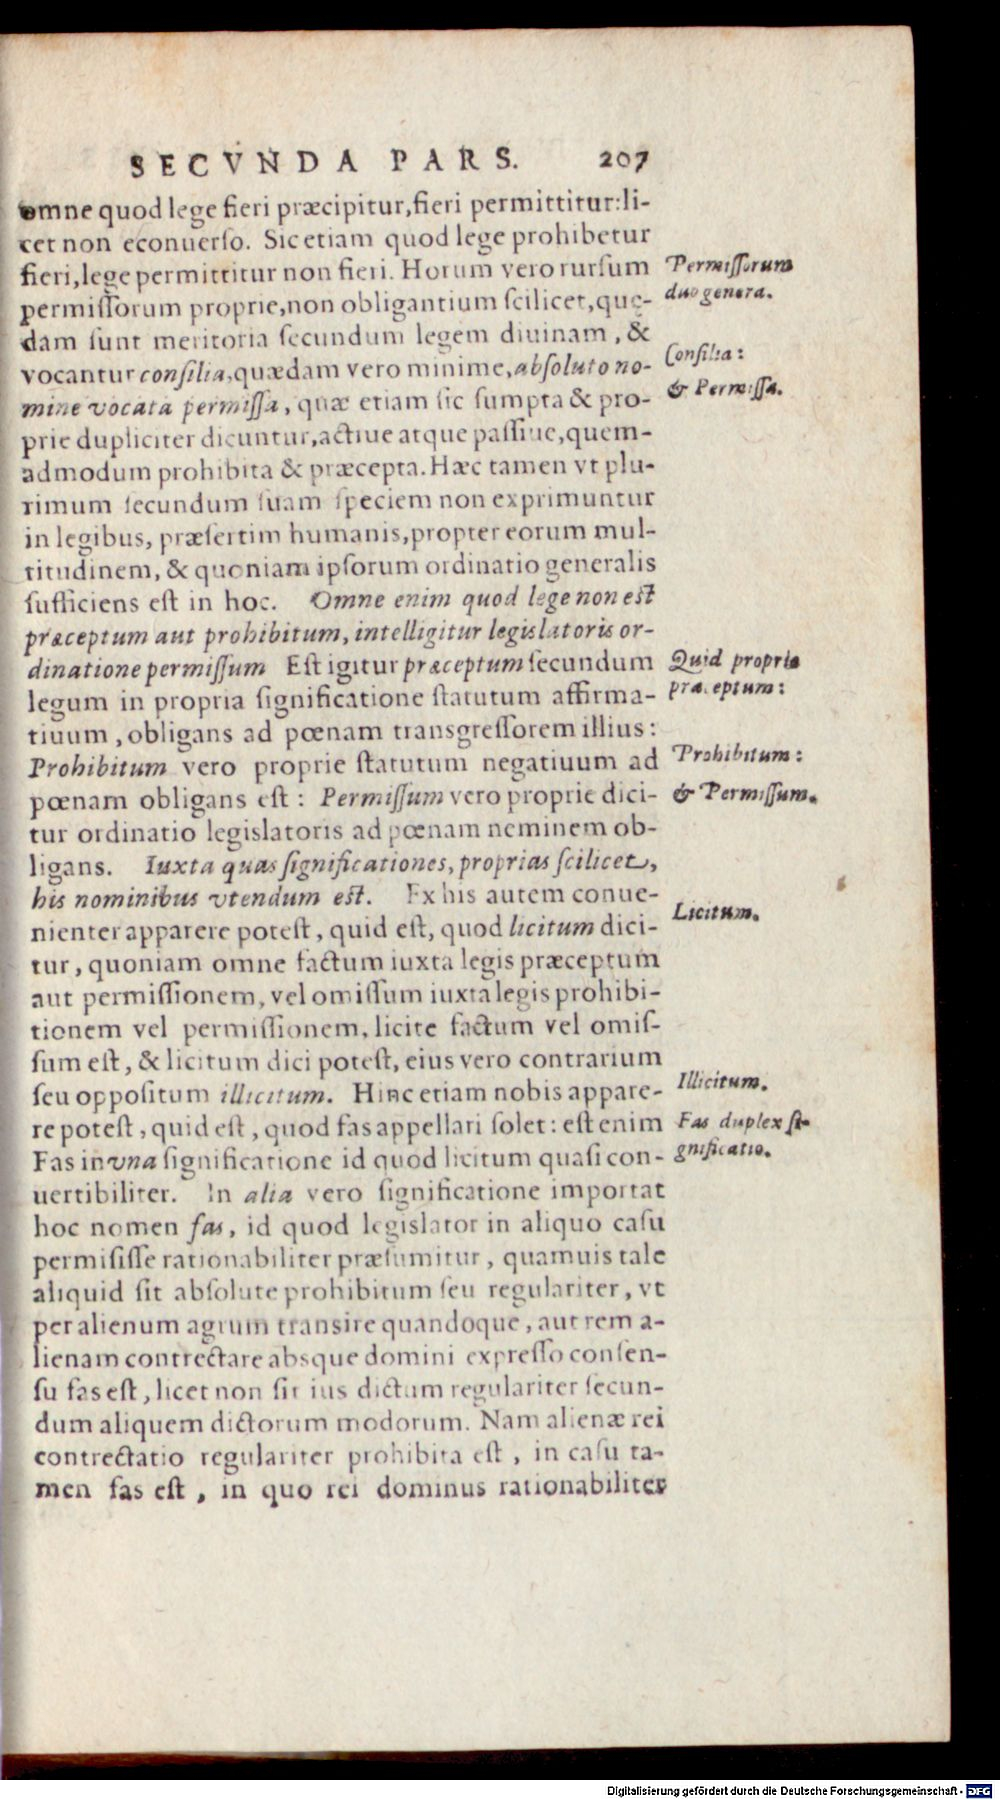 SECVNDA PARS. 207
omne quod lege fieri præcipitur,fieri permittitur:li-
cet non econuerſo. Sic etiam quod lege prohibetur
fieri,lege permittitur non fieri. Horum vero rurſum
permiſſorum proprie,non obligantium ſcilicet,quę-
dam ſunt meritoria ſecundum legem diuinam, &
vocantur conſilia,quædam vero minime,abſoluto no-
mine vocata permiſſa, quæ etiam ſic ſumpta & pro-
prie dupliciter dicuntur,actiue atque paſſiue,quem-
admodum prohibita & præcepta. Hæc tamen vt plu-
rimum ſecundum ſuam ſpeciem non exprimuntur
in legibus, præſertim humanis,propter eorum mul-
titudinem, & quoniam ipſorum ordinatio generalis
ſufficiens eſt in hoc. Omne enim quod lege non eſt
præceptum aut prohibitum, intelligitur legislatoris or-
dinatione permiſſum Eſt igitur præceptum ſecundum
legum in propria ſignificatione ſtatutum affirma-
tiuum, obligans ad pœnam transgreſſorem illius:
Prohibitum vero proprie ſtatutum negatiuum ad
pœnam obligans eſt: Permiſſum vero proprie dici-
tur ordinatio legislatoris ad pœnam neminem ob-
ligans. Iuxta quas ſignificationes, proprias ſcilicet,
his nominibus vtendum eſt. Ex his autem conue-
nienter apparere poteſt, quid eſt, quod licitum dici-
tur, quoniam omne factum iuxta legis præceptum
aut permiſſionem, vel omiſſum iuxta legis prohibi-
tionem vel permiſſionem, licite factum vel omiſ-
ſum eſt, & licitum dici poteſt, eius vero contrarium
ſeu oppoſitum illicitum. Hinc etiam nobis appare-
re poteſt, quid eſt, quod fas appellari ſolet: eſt enim
Fas in vna ſignificatione id quod licitum quaſi con-
uertibiliter. In alia vero ſignificatione importat
hoc nomen fas, id quod legislator in aliquo caſu
permiſiſſe rationabiliter præſumitur, quamuis tale
aliquid ſit abſolute prohibitum ſeu regulariter, vt
per alienum agrum transire quandoque, aut rem a-
lienam contrectare absque domini expreſſo conſen-
ſu fas eſt, licet non ſit ius dictum regulariter ſecun-
dum aliquem dictorum modorum. Nam alienæ rei
contrectatio regulariter prohibita eſt, in caſu ta-
men fas eſt, in quo rei dominus rationabiliter
Permiſſorum
duo genera.
Conſilia:
& Permiſſa.
Quid proprie
præceptum:
Prohibitum:
& Permiſſum.
Licitum.
Illicitum.
Fas duplex ſi-
gnificatio.
Digitalisierung gefördert durch die Deutsche Forschungsgemeinschaft - DFG